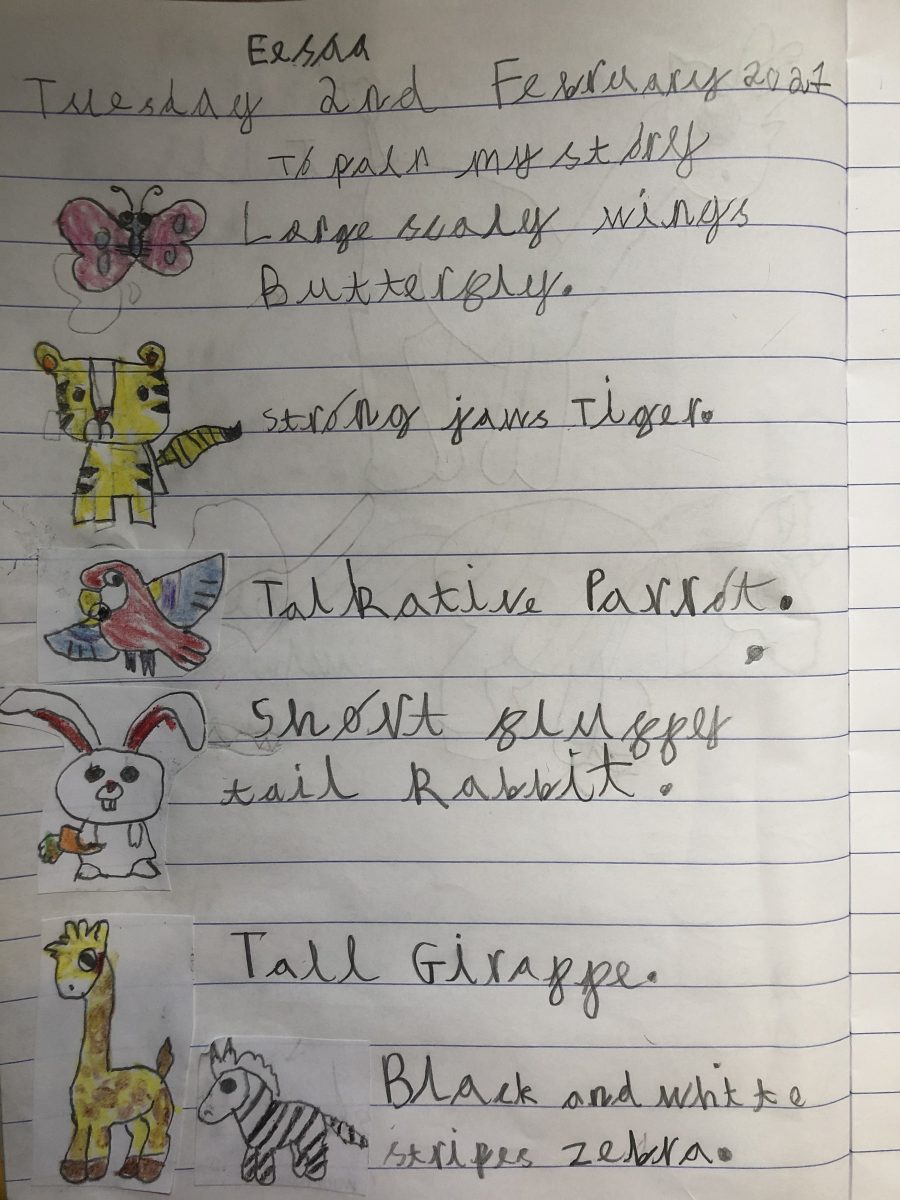 Eesaa
Tuesday 2nd February 2021
To paln my storey
Large scaly wings
Butterfly.
strong jaws Tiger.
Talkative Parrot.
Short fluffey
tail Rabbit.
Tall Giraffe.
Black and white
stripes zebra.